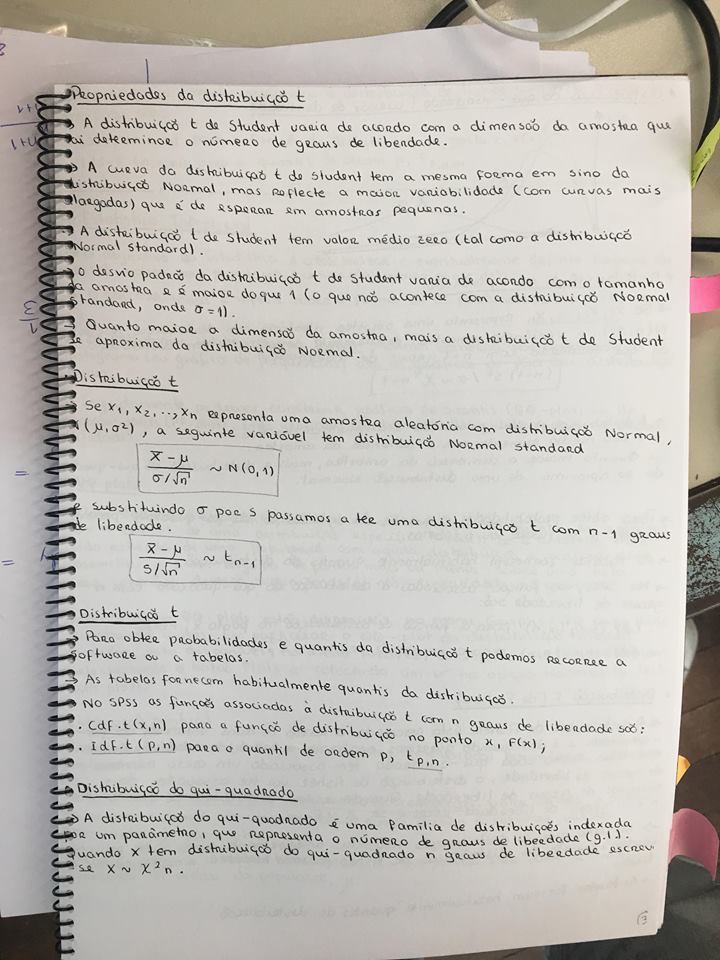 Propriedades da distribuição t
→ A distribuição t de Student varia de acordo com a dimensão da amostra que
vai determinar o número de graus de liberdade.
→ A curva da distribuição t de Student tem a mesma forma em sino da
distribuição Normal, mas reflecte a maior variabilidade (com curvas mais
alargadas) que é de esperar em amostras pequenas.
→ A distribuição t de Student tem valor médio zero (tal como a distribuição
Normal standard).
→ O desvio padrão da distribuição t de Student varia de acordo com o tamanho
da amostra e é maior do que 1 (o que não acontece com a distribuição Normal
standard, onde σ=1).
→ Quanto maior a dimensão da amostra, mais a distribuição t de Student
se aproxima da distribuição Normal.
Distribuição t
→ Se x₁, x₂, ..., xₙ representa uma amostra aleatória com distribuição Normal,
N(μ,σ²), a seguinte variável tem distribuição Normal standard
(x̄ - μ) / (σ/√n) ~ N(0,1)
e substituindo σ por s passamos a ter uma distribuição t com n-1 graus
de liberdade.
(x̄ - μ) / (s/√n) ~ tₙ₋₁
Distribuição t
→ Para obter probabilidades e quantis da distribuição t podemos recorrer a
software ou a tabelas.
→ As tabelas fornecem habitualmente quantis da distribuição.
→ No SPSS as funções associadas à distribuição t com n graus de liberdade são:
. Cdf.t(x,n) para a função de distribuição no ponto x, F(x);
. Idf.t(p,n) para o quantil de ordem p, t p,n.
Distribuição do qui-quadrado
→ A distribuição do qui-quadrado é uma família de distribuições indexada
por um parâmetro, que representa o número de graus de liberdade (g.l).
Quando X tem distribuição do qui-quadrado n graus de liberdade escrev
se X ~ χ²n.
13